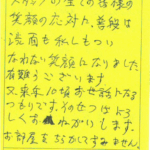 スタッフの全ての皆様の
笑顔の応対に、普段は
渋面も私しもつい
なれない笑顔になりました
有難うございます
又来年10組お世話になる
つもりです。そのせつはよろ
しくおねがいします。
お部屋をちらかしてすみません。